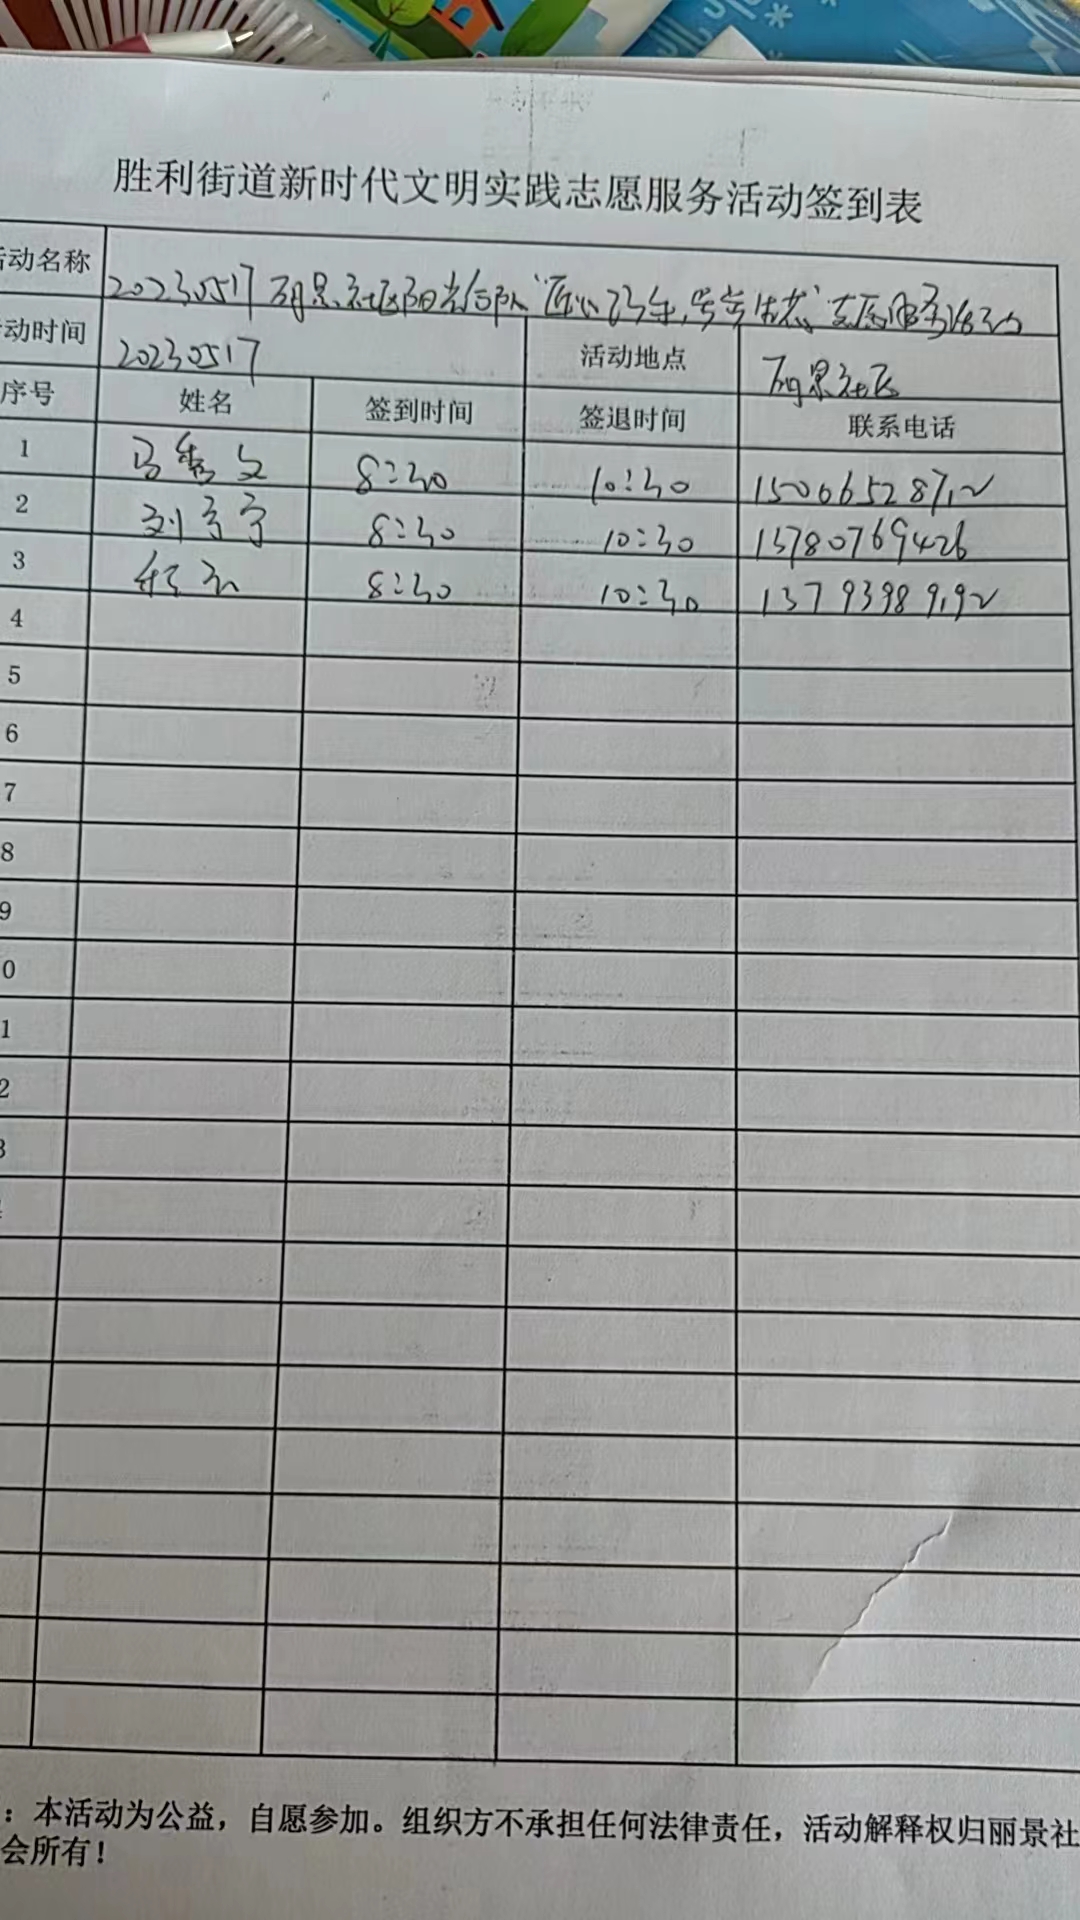 胜利街道新时代文明实践志愿服务活动签到表
活动名称 20230517丽景社区阳光 队“匠心 ， ”志愿服务活动
动时间 20230517 活动地点 丽景社区
序号 姓名 签到时间 签退时间 联系电话
1 马秀文 8:30 10:30
2 刘宁宁 8:30 10:30 13780769426
3 8:30 10:30
4
5
6
7
8
9
0
1
2
3
：本活动为公益，自愿参加。组织方不承担任何法律责任，活动解释权归丽景社
会所有！